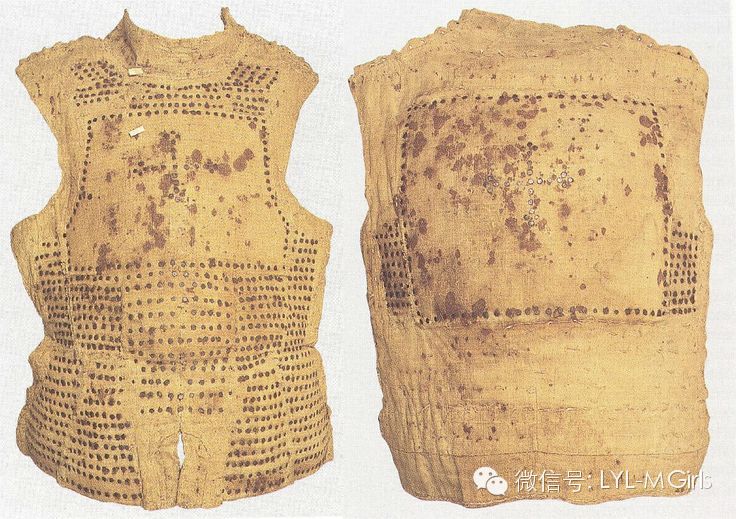 微信号: LYL-MGirls